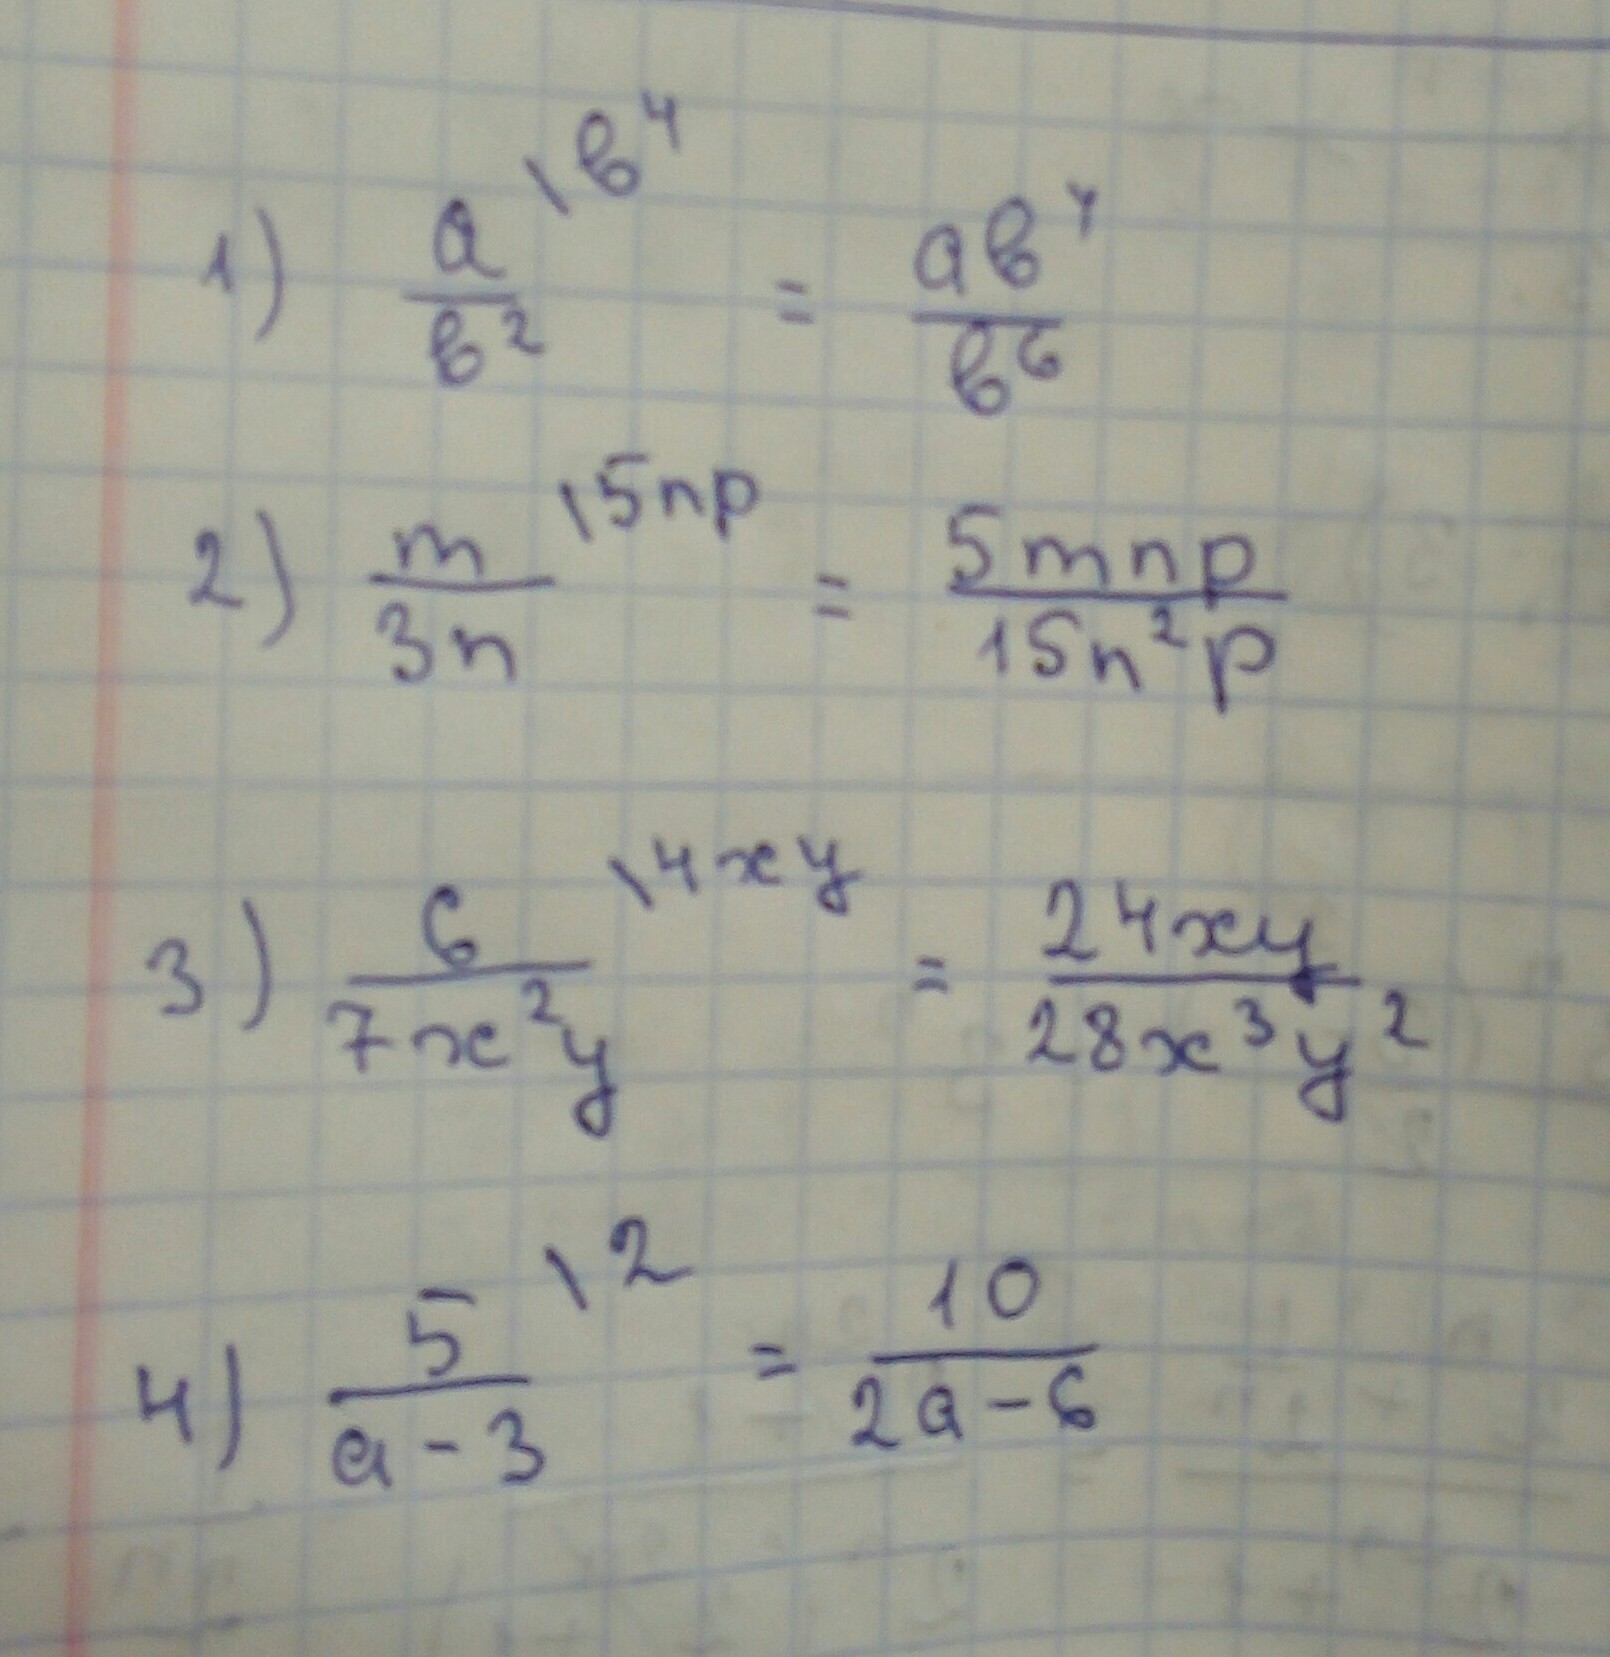 1) a/в² \в⁴ = aв⁴/в⁶
2) m/3n \5np = 5mnp/15n²p
3) 6/7x²y \4xy = 24xy/28x³y²
4) 5/a-3 \2 = 10/2a-6